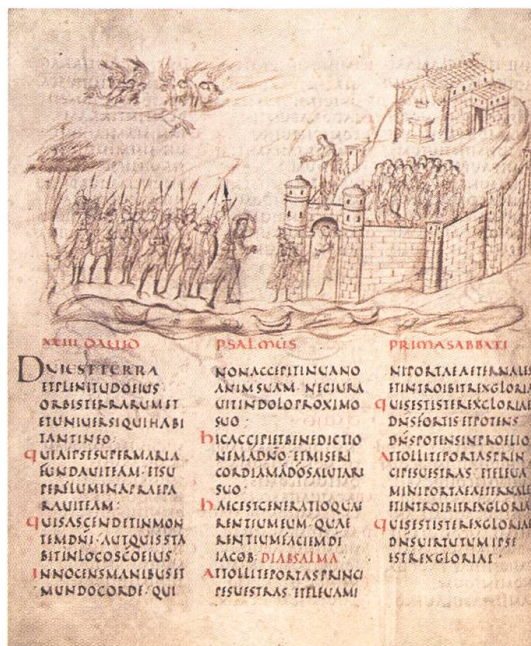 XXIII DAUID
PSALMUS
PRIMASABBATI
DNIESTTERRA
ETPLENITUDOEIUS
ORBISTERRARUMET
ETUNIUERSIQUIHABI
TANTINEO
QUIAIPSESUPERMARIA
FUNDAUITEAM ETSU
PERFLUMINAPRAEPA
RAUITEAM
QUISASCENDETINMON
TEMDNI AUTQUISSTA
BITINLOCOSCOEIUS
INNOCENSMANIBUSET
MUNDOCORDE QUI
NONACCEPITINUANO
ANIMSUAM NECIURA
UITINDOLOPROXIMO
SUO
HICACCIPIETBENEDICTIO
NEMADNO ETMISERI
CORDIAMADOSALUTARI
SUO
HAECESTGENERATIOQUAE
RENTIUMEUM QUAE
RENTIUMFACIEMDI
IACOB DIABSALMA
ATTOLLITEPORTASPRINCI
PESUESTRAS ETELEUAMI
NIPORTAEAETERNALES
ETINTROIBITREXGLORIAE
QUISESTISTEREXGLORIAE
DNSFORTISETPOTENS
DNSPOTENSINPROELIO
ATTOLLITEPORTASPRIN
CIPESUESTRAS ETELEUA
MINIPORTAEAETERNALES
ETINTROIBITREXGLORIAE
QUISESTISTEREXGLORIAE
DNSUIRTUTUMIPSE
ESTREXGLORIAE